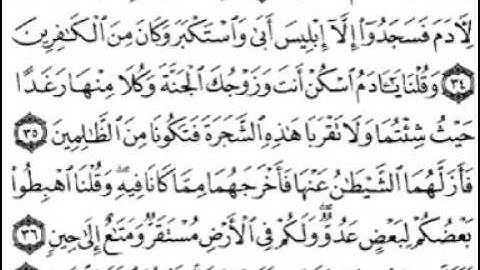 لِأَدَمَ فَسَجَدُوٓا۟ إِلَّآ إِبْلِيسَ أَبَىٰ وَٱسْتَكْبَرَ وَكَانَ مِنَ ٱلْكَـٰفِرِينَ
٣٤ وَقُلْنَا يَـٰٓـَٔادَمُ ٱسْكُنْ أَنتَ وَزَوْجُكَ ٱلْجَنَّةَ وَكُلَا مِنْهَا رَغَدًا
حَيْثُ شِئْتُمَا وَلَا تَقْرَبَا هَـٰذِهِ ٱلشَّجَرَةَ فَتَكُونَا مِنَ ٱلظَّـٰلِمِينَ ٣٥
فَأَزَلَّهُمَا ٱلشَّيْطَـٰنُ عَنْهَا فَأَخْرَجَهُمَا مِمَّا كَانَا فِيهِ ۖ وَقُلْنَا ٱهْبِطُوا۟
بَعْضُكُمْ لِبَعْضٍ عَدُوٌّ ۖ وَلَكُمْ فِى ٱلْأَرْضِ مُسْتَقَرٌّ وَمَتَـٰعٌ إِلَىٰ حِينٍ ٣٦